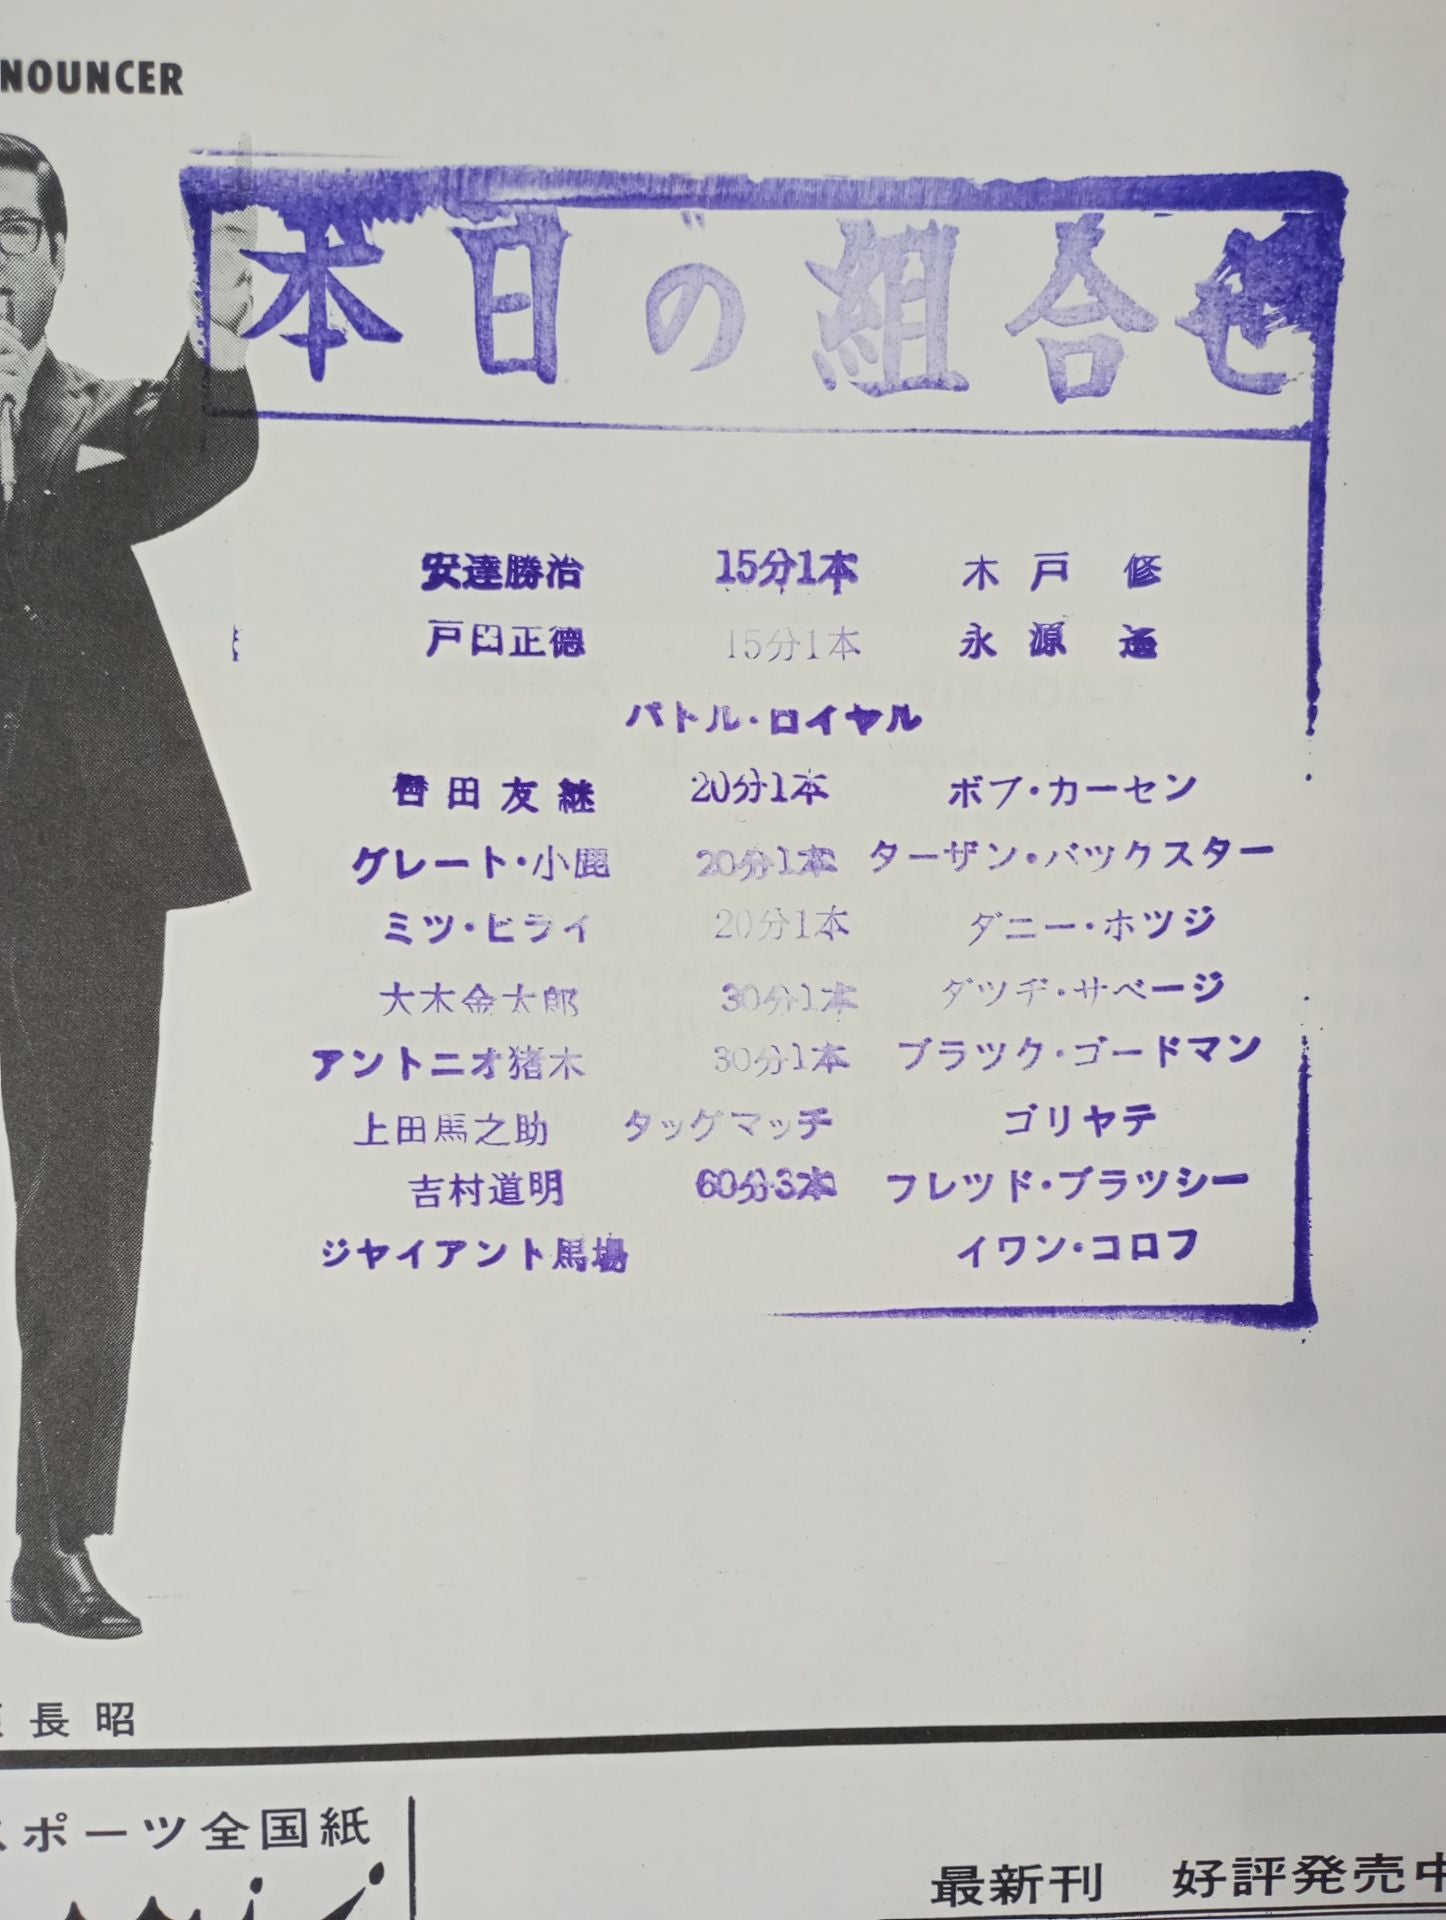 NOUNCER
本日の組合せ
安達勝治 15分1本 木戸修
戸田正徳 15分1本 永源遥
バトル・ロイヤル
田友継 20分1本 ボブ・カーセン
グレート・小鹿 20分1本 ターザン・バツクスター
ミツ・ヒライ 20分1本 ダニー・ホツジ
大木金太郎 30分1本 ダツヂ・サベージ
アントニオ猪木 30分1本 ブラツク・ゴードマン
上田馬之助 タッグマッチ ゴリヤテ
吉村道明 60分3本 フレツド・ブラツシー
ジヤイアント馬場 イワン・コロフ
長昭
スポーツ全国紙
最新刊 好評発売中